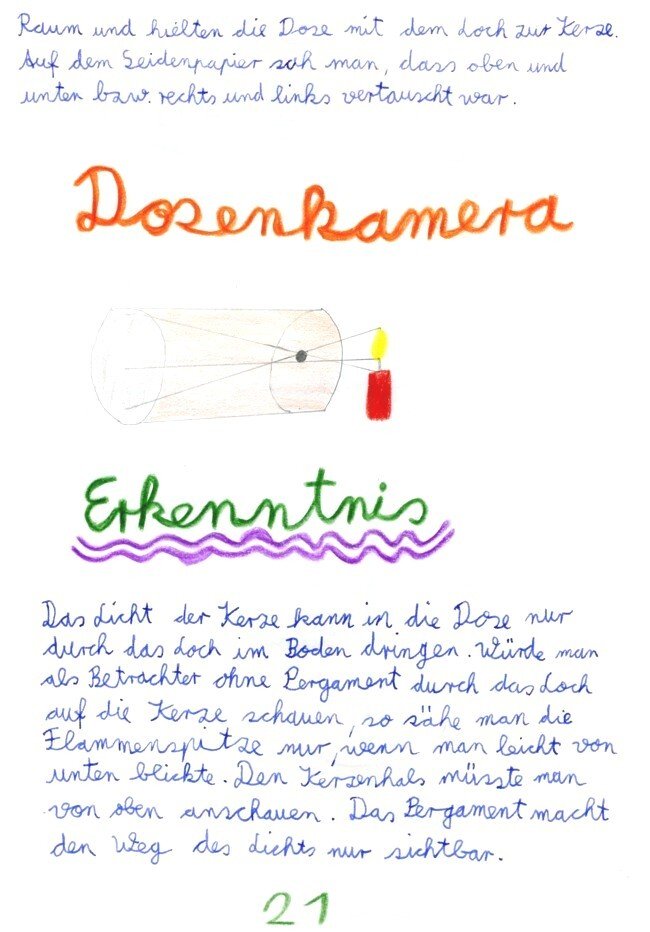 Raum und hielten die Dose mit dem Loch zur Kerze.
Auf dem Seidenpapier sah man, dass oben und
unten bzw. rechts und links vertauscht war.
Dosenkamera
Erkenntnis
Das Licht der Kerze kann in die Dose nur
durch das Loch im Boden dringen. Würde man
als Betrachter ohne Pergament durch das Loch
auf die Kerze schauen, so sähe man die
Flammenspitze nur, wenn man leicht von
unten blickte. Den Kerzenhals müsste man
von oben anschauen. Das Pergament macht
den Weg des Lichts nur sichtbar.
21